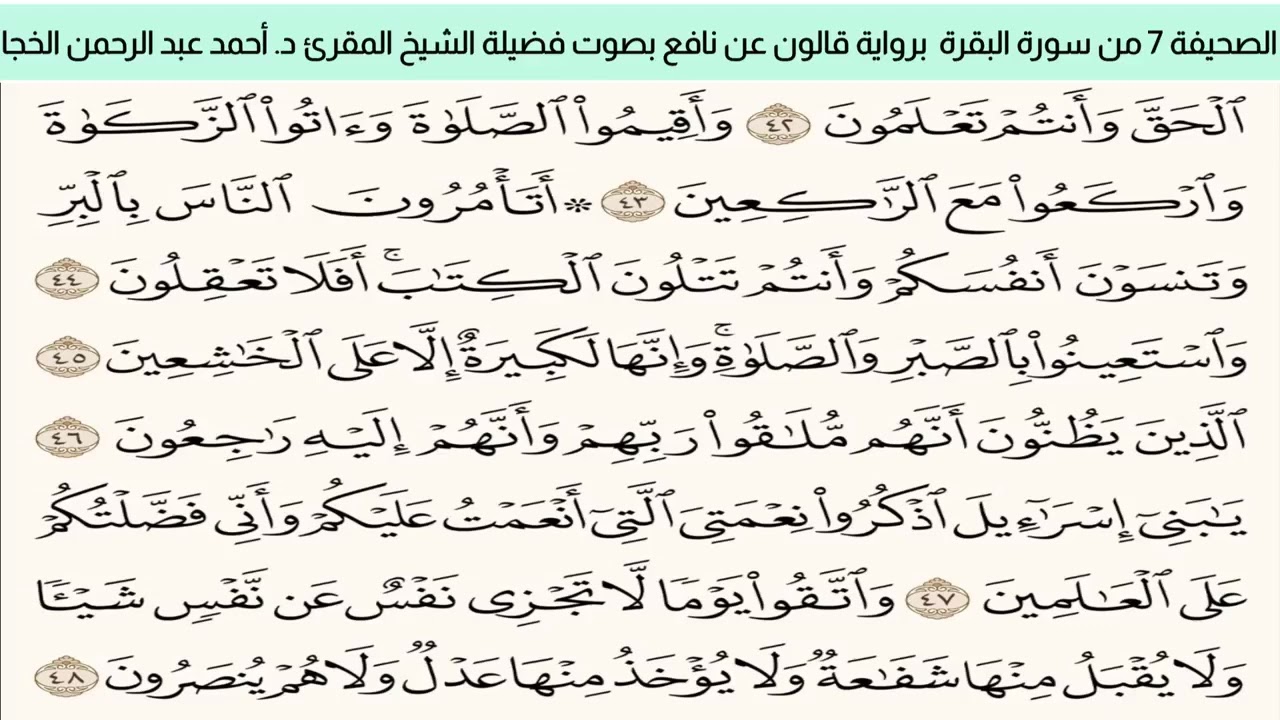 الصحيفة 7 من سورة البقرة برواية قالون عن نافع بصوت فضيلة الشيخ المقرئ د. أحمد عبد الرحمن الخجا
اَ۬لْحَقَّ وَأَنتُمْ تَعْلَمُونَ ٤٢ وَأَقِيمُواْ اُ۬لصَّلَوٰةَ وَءَاتُواْ اُ۬لزَّكَوٰةَ
وَارْكَعُواْ مَعَ اَ۬لرَّٰكِعِينَ ٤٣ ۞أَتَأْمُرُونَ اَ۬لنَّاسَ بِالْبِرِّ
وَتَنسَوْنَ أَنفُسَكُمْ وَأَنتُمْ تَتْلُونَ اَ۬لْكِتَٰبَۚ أَفَلَا تَعْقِلُونَ ٤٤
وَاسْتَعِينُواْ بِالصَّبْرِ وَالصَّلَوٰةِۚ وَإِنَّهَا لَكَبِيرَةٌ إِلَّا عَلَى اَ۬لْخَٰشِعِينَ ٤٥
اَ۬لَّذِينَ يَظُنُّونَ أَنَّهُم مُّلَٰقُواْ رَبِّهِمْ وَأَنَّهُمْ إِلَيْهِ رَٰجِعُونَ ٤٦
يَٰبَنِىٓ إِسْرَآءِيلَ اَ۟ذْكُرُواْ نِعْمَتِىَ اَ۬لَّتِىٓ أَنْعَمْتُ عَلَيْكُمْ وَأَنِّى فَضَّلْتُكُمْ
عَلَى اَ۬لْعَٰلَمِينَ ٤٧ وَاتَّقُواْ يَوْمًا لَّا تَجْزِى نَفْسٌ عَن نَّفْسٍ شَيْـًٔا
وَلَا يُقْبَلُ مِنْهَا شَفَٰعَةٌ وَلَا يُؤْخَذُ مِنْهَا عَدْلٌ وَلَا هُمْ يُنصَرُونَ ٤٨